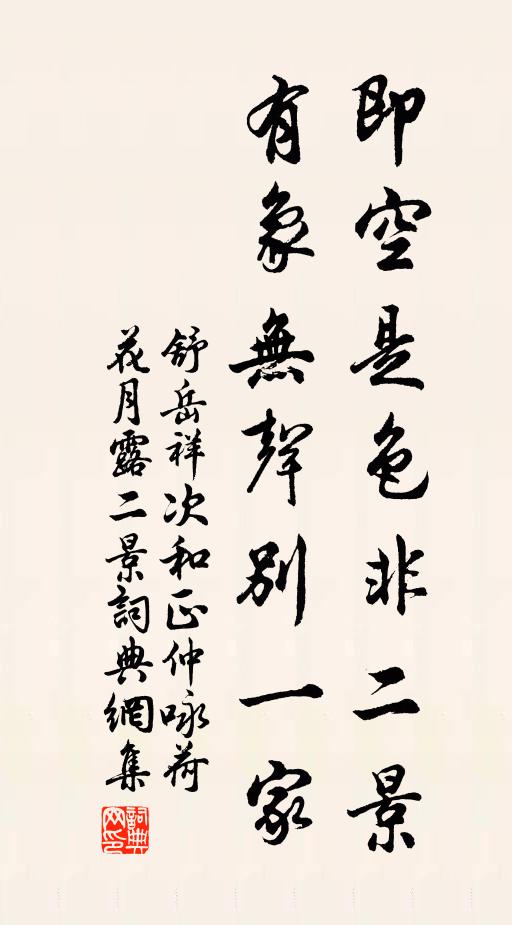 即空是色非二景
有象無聲別一家
舒岳祥次和正仲咏荷
花月露二景詞典網集
詞典网印